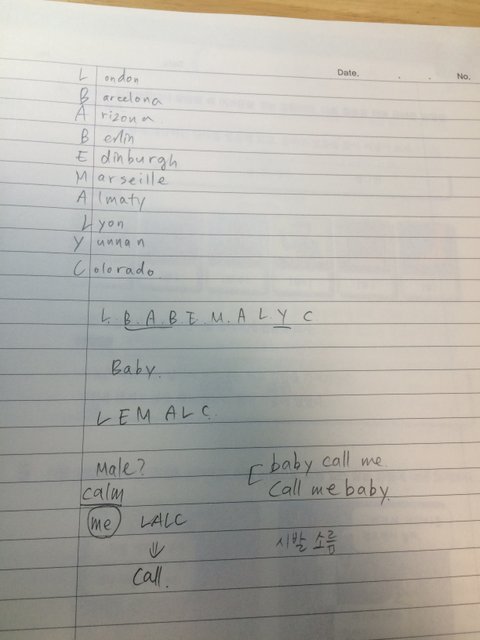 Date. . . No.
London
Barcelona
Arizona
Berlin
Edinburgh
Marseille
Almaty
Lyon
Yunnan
Colorado.
L. B. A. B. E. M. A L Y C
Baby.
L E M A L C.
Male?
calm
me LALC
⇓
Call.
[ baby call me.
Call me baby.
시발 소름